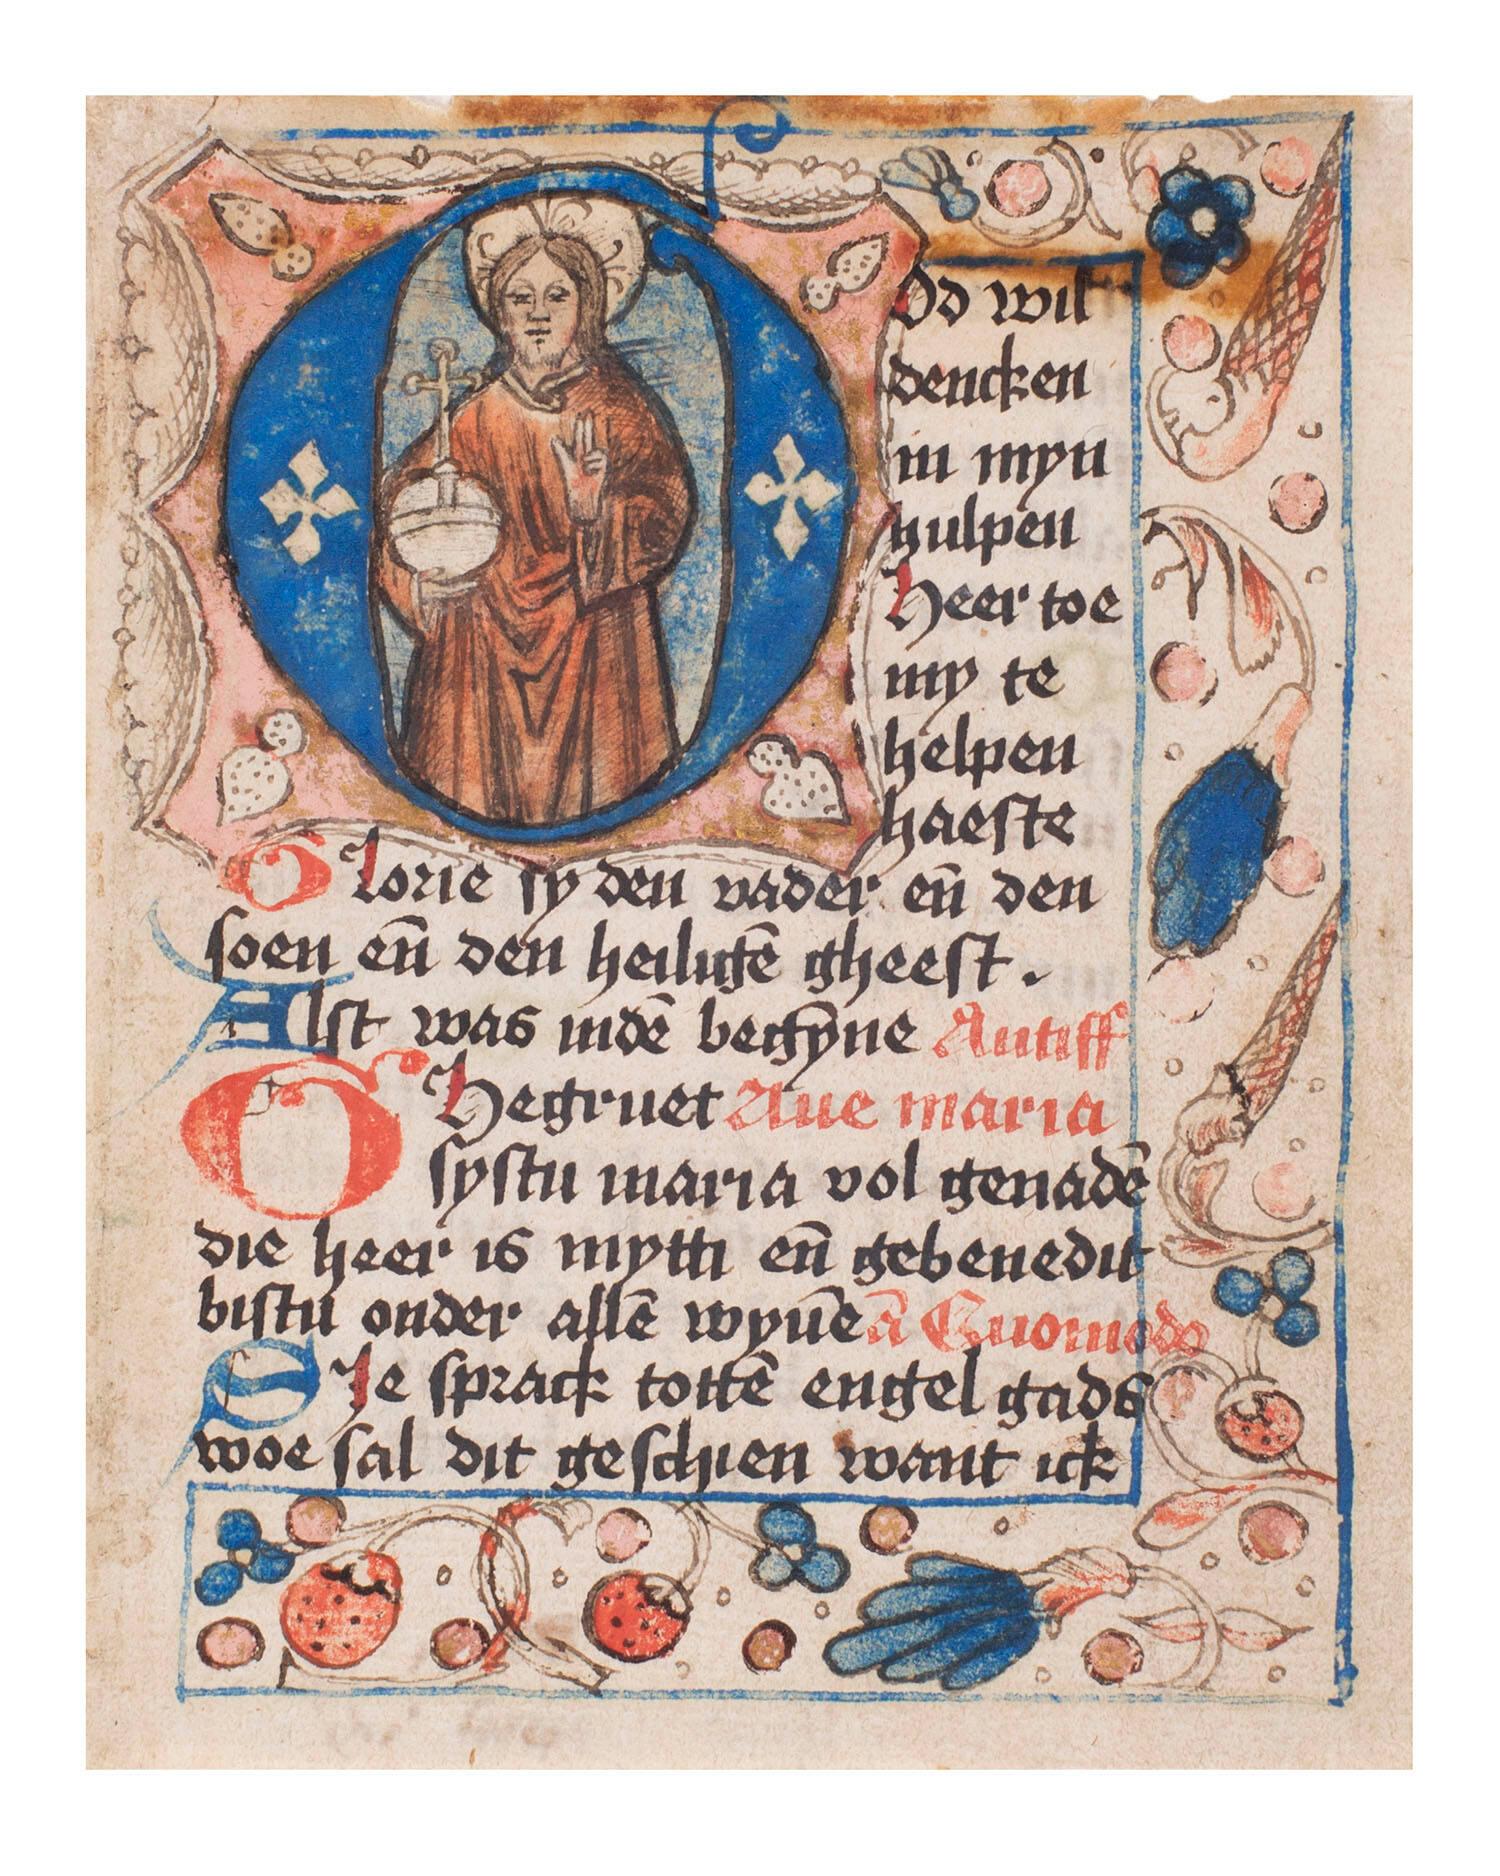 God wil
dencken
in myn
hulpen
Heer toe
my te
helpen
haeste
Glorie sy den vader en̄ den
soen en̄ den heiligē gheest.
Alst was indē begȳne Antiff
Ghegruet Aue maria
systu maria vol genadē
die heer is mytti en̄ gebenedit
bistu onder allē wyuē ā Quomodo
SJe sprack tottē engel gads
woe sal dit geschien want ick